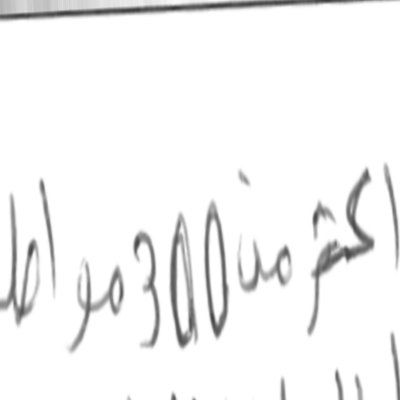 اكثر من 300 مواطـ